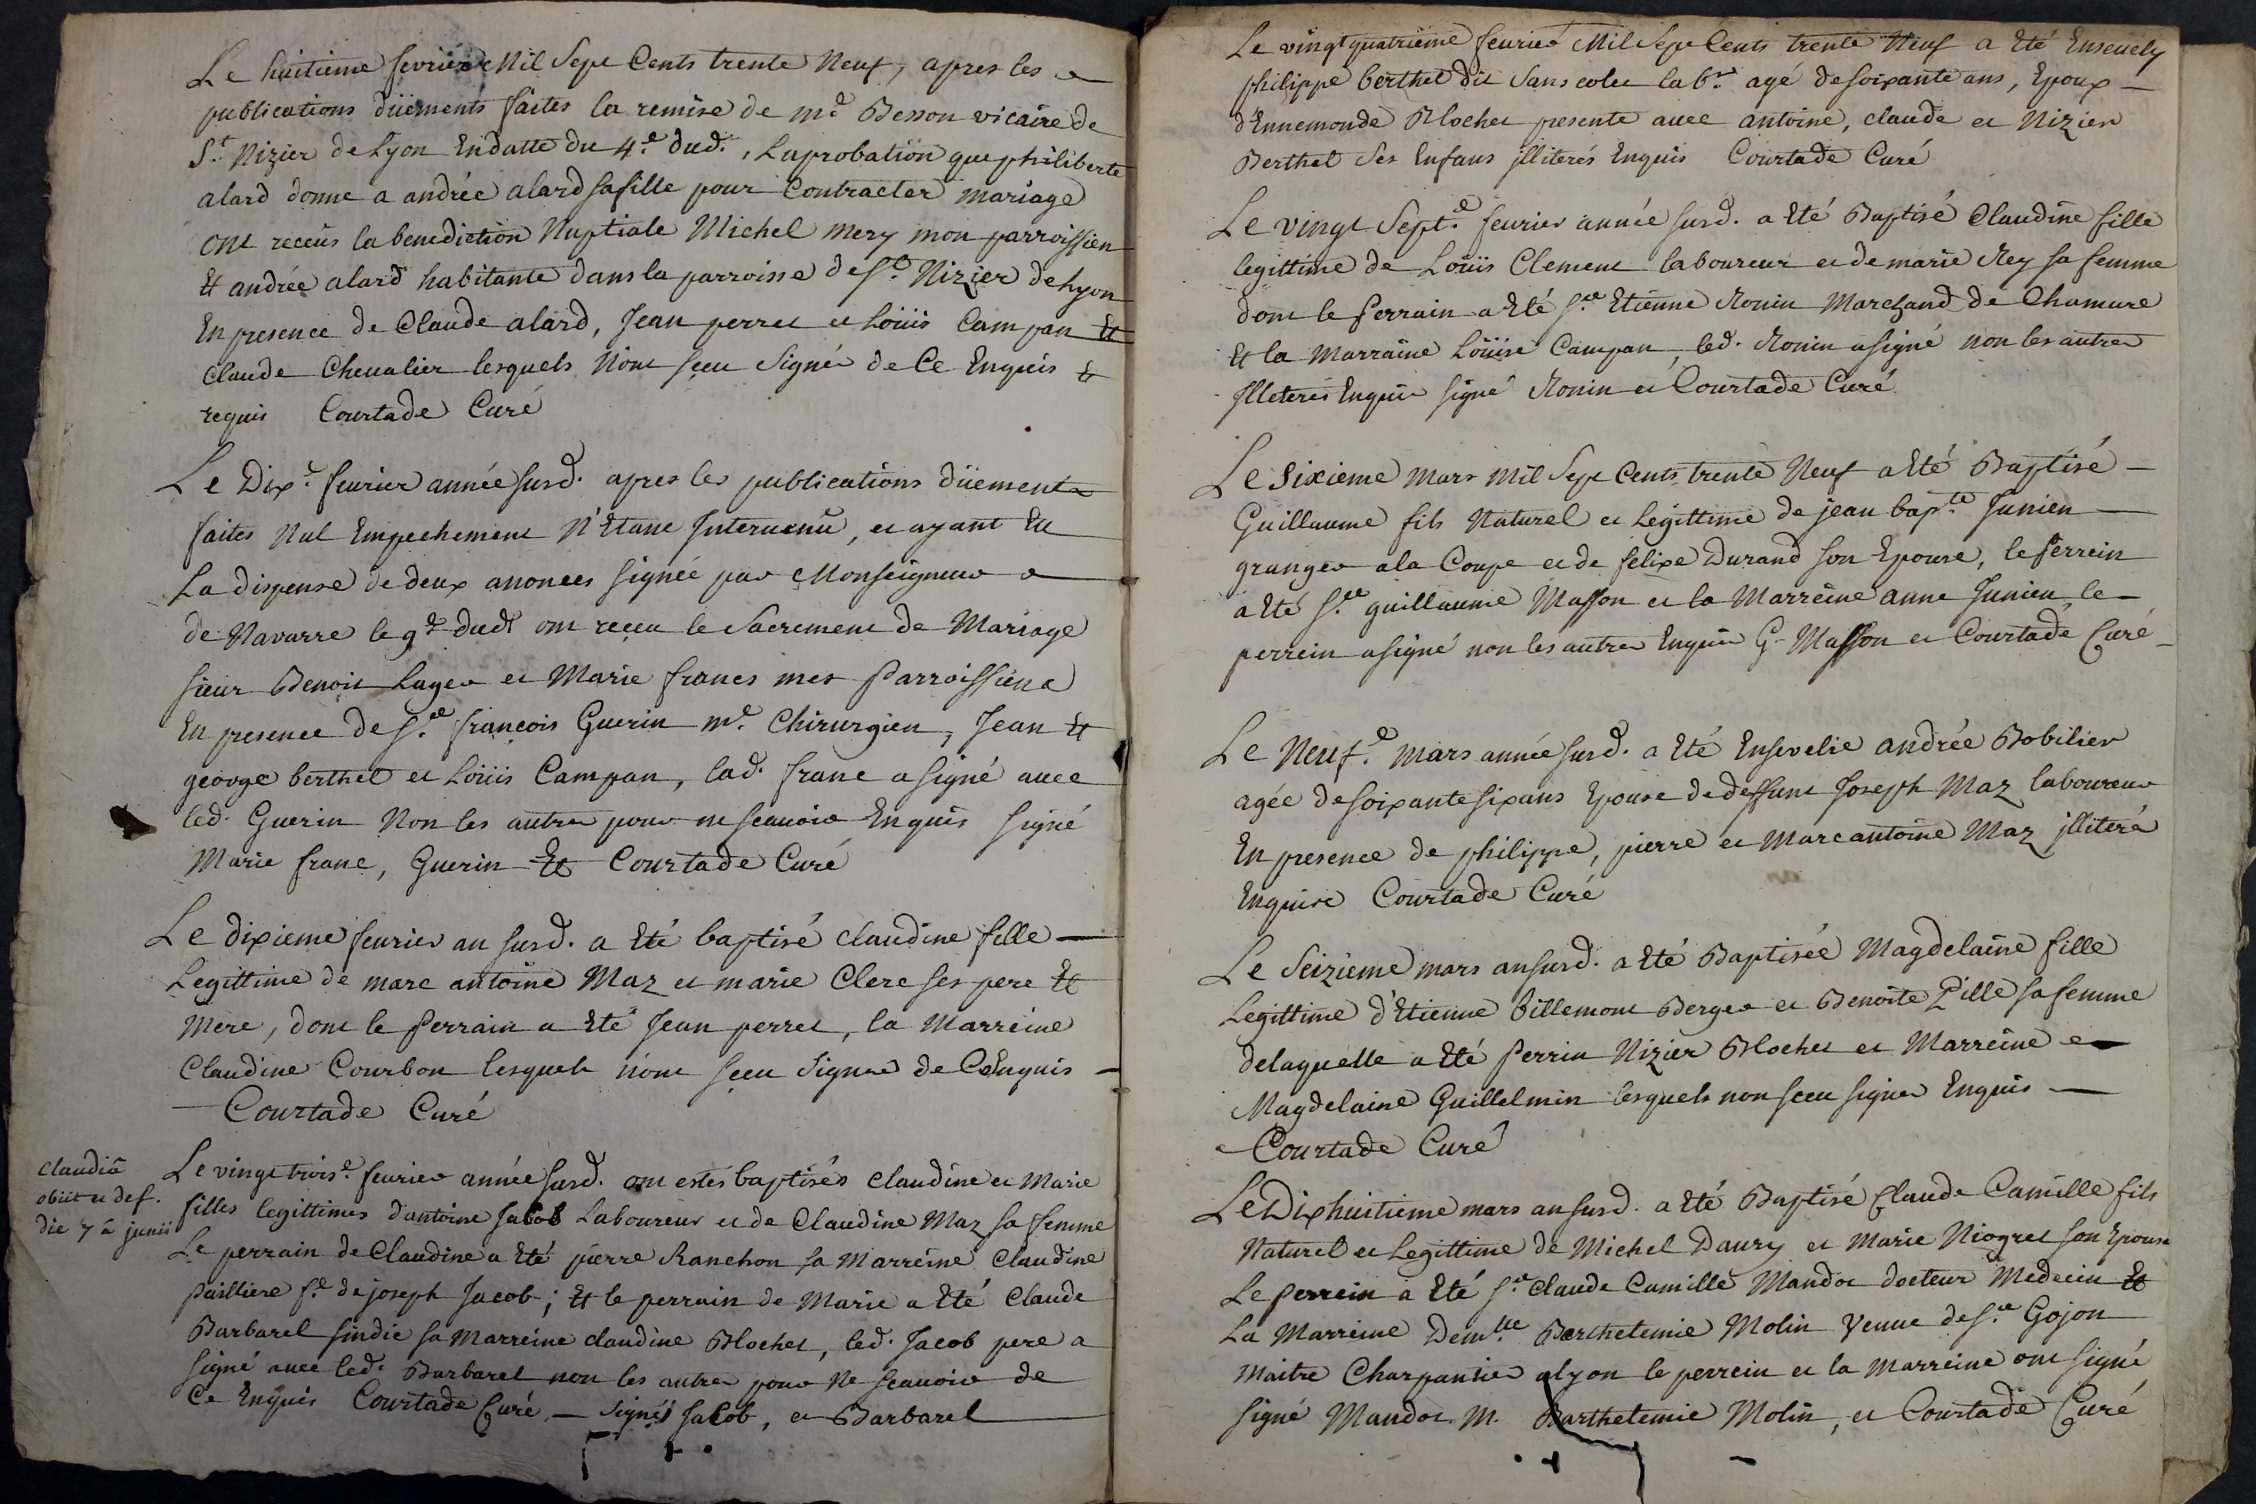 Le huitieme fevrier Mil Sept Cents trente Neuf, apres les
publications düements faites la remise de mre Besson vicaire de
St Nizier de Lyon Endatte du 4e dud., Laprobation que philiberte
alard donne a andrée alard sa fille pour Contracter mariage
ont receus la benediction Nuptiale Michel mery mon parroissien
Et andrée alard habitante dans la parroisse de St Nizier de Lyon
En presence de Claude alard, Jean perret et Loüis Campan Et
Claude Chevalier lesquels N'ont sceu Signer de Ce Enquis Et
requis Courtade Curé
Le Dixe fevrier année susd. apres les publications düements
faites Nul Empechement N'Etant Intervenu, et ayant Eu
La dispense de deux anonces signée par Monseigneur
de Navarre le 9e dudt ont receu le Sacrement de Mariage
sieur Benoit Lager et Marie francs mes Parroissiens
En presence de Sr françois Guerin me Chirurgien, Jean Et
george berthet et Loüis Campan, lad. franc a signé avec
led. Guerin Non les autres pour ne scauoir Enquis signé
Marie franc, Guerin Et Courtade Curé
Le dixieme fevrier an susd. a Eté baptisé claudine fille
Legittime de marc antoine Maz et marie Clerc ses pere Et
Mere, dont le Perrain a Eté Jean perret, la Marreine
Claudine Courbon lesquels n'ont sceu Signer de Ce Enquis
Courtade Curé
claudiã
obiit et def.
die 7 ã junii
Le vingt troise fevrier année susd. ont estés baptisés claudine et Marie
filles legittimes d'antoine Jacob Laboureur et de Claudine Maz sa femme
Le perrain de Claudine a Eté pierre Ranchon sa Marreine Claudine
Pailliere fe de joseph Jacob; Et le perrain de Marie a Eté Claude
Barbarel sindic sa Marreine claudine Blochet, led. Jacob pere a
signé avec led. Barbarel non les autres pour Ne scauoir de
Ce Enquis Courtade Curé — Signés Jacob, et Barbarel
Le vingt quatrieme fevrier Mil Sept Cents trente Neuf a Eté Ensevely
philippe berthet dit Sans colet labr agé de soixante ans, Epoux
d'Ennemonde Blochet presente avec antoine, claude et Nizier
Berthet Ses Enfans jlliterés Enquis Courtade Curé
Le vingt Septe fevrier année susd. a Eté Baptisé Claudine fille
legittime de Loüis Clement laboureur et de marie Rey sa femme
dont le Perrain a Eté Sr Etienne Ronin Marchand de Chamure
Et la Marraine Loüise Campan, led. Ronin a signé non les autres
Illiterés Enquis signé Ronin et Courtade Curé
Le Sixieme Mars Mil Sept Cents trente Neuf a Eté Baptisé
Guillaume fils Naturel et Legittime de jean bapte Junien
granger a la Coupe et de felixe Durand son Epouse, le Perrein
a Eté Sr guillaume Masson et la Marreine anne Junien, le
perrein a signé non les autres Enquis G. Masson et Courtade Curé
Le Neufe mars année susd. a Eté Ensevelie andrée Bobilier
agée de soixante six ans Epouse de deffunt Joseph Maz laboureur
En presence de philippe, pierre et Marc antoine Maz jlliterés
Enquis Courtade Curé
Le Seizieme mars an susd. a Eté Baptisée Magdelaine fille
Legittime d'Etienne Villemont Berger et Benoite Pille sa femme
de laquelle a Eté Perrin Nizier Blochet et Marreine
Magdelaine Guillelmin lesquels non sceu signer Enquis
Courtade Curé
Le Dixhuitieme mars an susd. a Eté Baptisé Claude Camille fils
Naturel et Legittime de Michel Daury et Marie Niogret son Epouse
Le Perrein a Eté Sr Claude Camille Mandot docteur Medecin Et
La Marreine Demlle Barthelemie Molin Veuve de Sr Gojon
Maitre Charpantier a Lyon le perrein et la Marreine ont signé
signé Mandot. M. Barthelemie Molin, et Courtade Curé